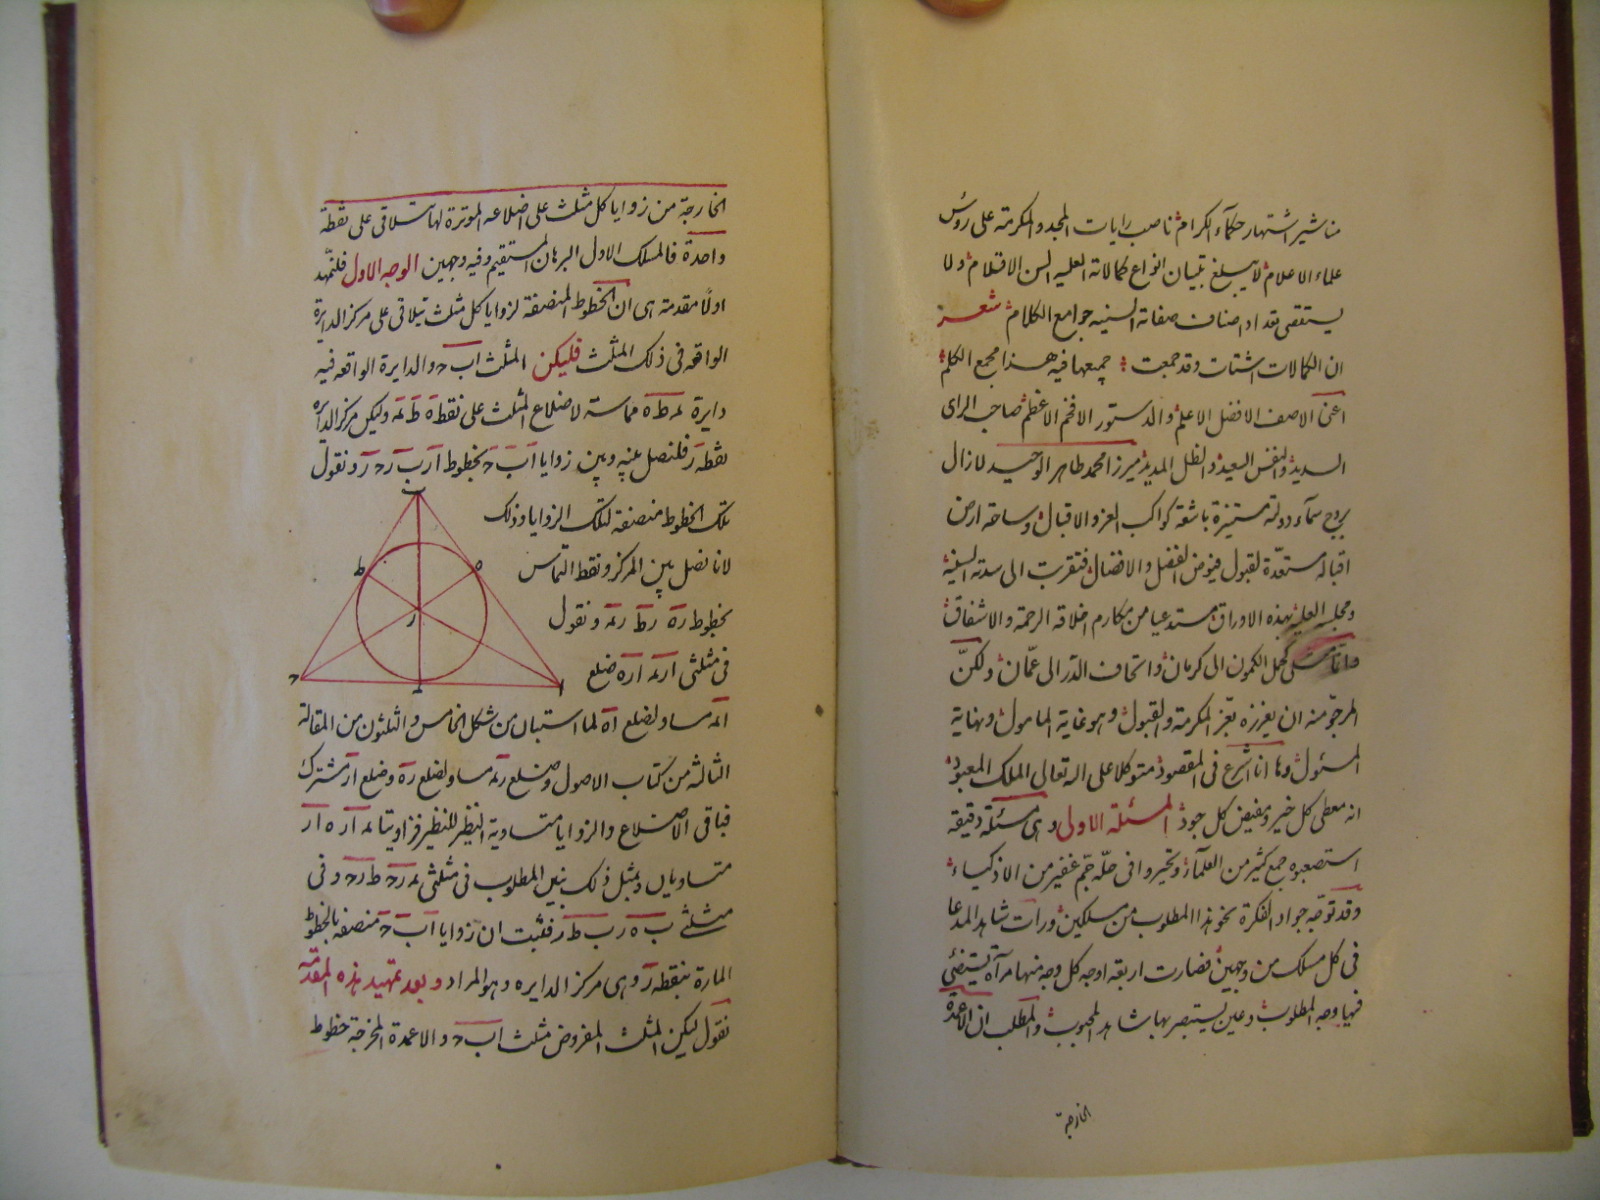 مناشير اشتهار حكمآء الكرام ناصب رايات المجد والمكرمة على رؤس
علماء الاعلام لا يبلغ تبيان انواع كمالاته العليه السن الاقلام ولا
يستقصى تعداد اصناف صفاته السنيه جوامع الكلام شعر
ان الكمالات اشتات وقد جمعت جميعها فيه هذا مجمع الكلم
اعنى الاصف الافضل الاعلم والدستور الافخم الاعظم صاحب الراى
السديد والنفس السعيد والظل المديد ميرزا محمد طاهر الوحيد لا زال
بروج سمآء دولته مستنيرة باشعة كواكب العز والاقبال وساحة ارض
اقباله مستعدّة لقبول فيوض الفضل والافضال فتقربت الى سدته السنيه
ومجلسه العليه بهذه الاوراق مستدعيا من مكارم اخلاقه الرحمة والاشفاق
كحمل الكمون الى كرمان واتحاف الدّر الى عمّان ولكنّ
المرجوّ منه ان يعززه بعز المكرمة والقبول وهو غاية المامول ونهاية
المسئول وها انا اشرع فى المقصود متوكلا على الله تعالى الملك المعبود
انه معطى كل خير ومفيض كل جود المسئلة الاولى وهى مسئلة دقيقه
استصعبه جمع كثير من العلمآء وتحيروا فى حلّه جمّ غفير من الاذكياء
وقد توجّه جواد الفكرة نحو هذا المطلوب من مسلكين ورات شاهد المدعا
فى كل مسلك من وجهين فصارت اربعة اوجه كل وجه منها مرآة يستضئ
فيها وجه المطلوب وعين يستبصر بها شاهد المحبوب والمطلب ان الاعمدة
الخارجة
الخارجة من زوايا كل مثلث على اضلاعه الموترة لها ستلاقى على نقطة
واحدة فالمسلك الاول البرهان المستقيم وفيه وجهين الوجه الاول فلنمهّد
اولًا مقدمة هى ان الخطوط المنصفة لزوايا كل مثلث تتلاقى على مركز الدايرة
الواقعة فى ذلك المثلث فليكن المثلث اب ح والدايرة الواقعه فيه
دايرة ىه ط ه مماسة لاضلاع المثلث على نقط ه ط ىه وليكن مركز الدايره
نقطة ر فلنصل بينه وبين زوايا ا ب ح بخطوط ا ر ب ر ح ر ونقول
تلك الخطوط منصفة لتلك الزوايا وذلك
لانا نصل بين المركز ونقط التماس
بخطوط ر ه ر ط ر ىه ونقول
فى مثلثى ا ر ىه ا ر ه ضلع
ا ىه مساو لضلع ا ه لما استبان من شكل الخامس والثلثون من المقالة
الثالثه من كتاب الاصول وضلع ر ىه مساو لضلع ر ه وضلع ا ر مشترك
فباقى الاضلاع والزوايا متساوية النظير للنظير فزاويتا ىه ا ر ه ا ر
متساويان وبمثل ذلك يتبين المطلوب فى مثلثى ىه ر ح ط ر ح وفى
مثلثى ب ه ر ب ط ر فثبت ان زوايا ا ب ح منصفه بالخطوط
المارة بنقطة ر وهى مركز الدايره وهو المراد وبعد تمهيد هذه المقدّمة
نقول ليكن المثلث المفروض مثلث ا ب ح والاعمدة المخرجة خطوط
ب
ط
ه
ر
ح
ىه
ا